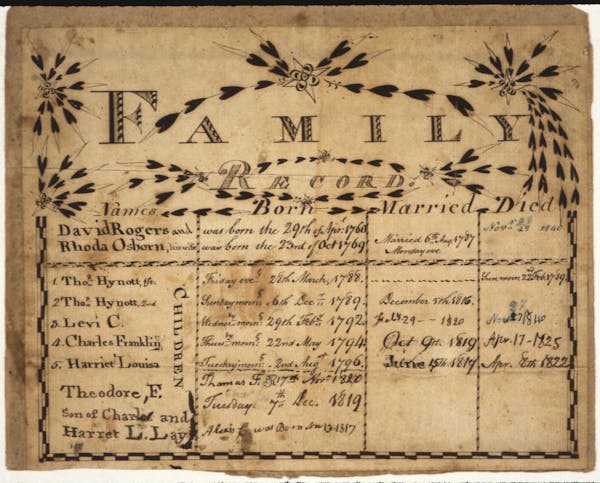 FAMILY
RECORD.
Names. Born Married Died
David Rogers and was born the 29th of Apr. 1760 Novr 1840
Rhoda Osborn, his wife was born the 23rd of Octr 1769 Married 6th Aug. 1787
Monday eve
CHILDREN
1. Thos. Hynott, 1st. Friday eveg 28th March, 1788. Sun. morn 22 Feb. 1789.
2 Thos. Hynott, 2nd Sunday morng 6th Decr 1789. December 5th 1816.
3 Levi C. Wednesy morng 29th Febry 1792. 29 1820 1840
4 Charles Franklin Thursy morng 22nd May 1794 Oct 9th 1819 Apr. 17 - 1825
5. Harriet Louisa Tuesday morng 2nd Augst 1796. June 15th 1817 Apr. 8th 1822
Thomas F. 17th Novr 1820
Theodore F. Tuesday 7th Dec. 1819
Son of Charles and
Harret L. Lay was Born 13 1817